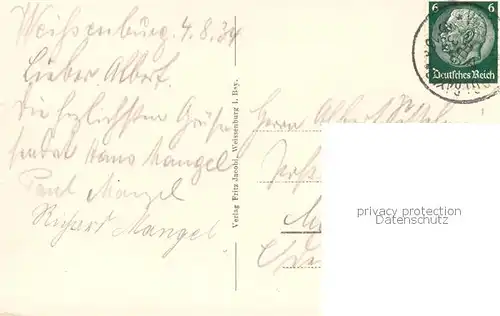 Weißenburg, 4.8.34
Lieber Albert.
Die herzlichsten Grüße
sendet Hans Mangel
Paul Mangel
Richard Mangel.
Verlag Fritz Jacobi, Weissenburg i. Bay.
6 6
Deutsches Reich
Herrn Albert
privacy protection
www.ansichtskartenversand.com